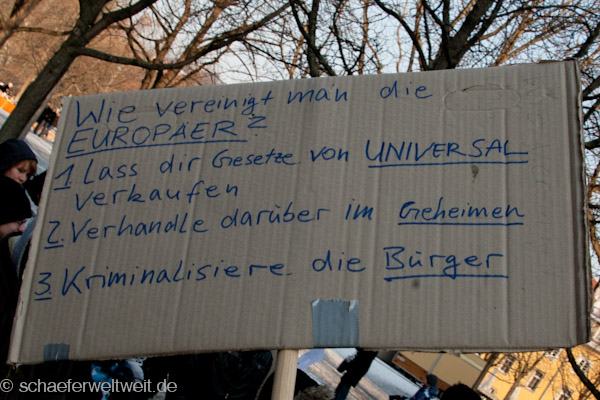 Wie vereinigt man die
EUROPÄER?
1 Lass dir Gesetze von UNIVERSAL
verkaufen
2. Verhandle darüber im Geheimen
3. Kriminalisiere die Bürger
© schaeferweltweit.de